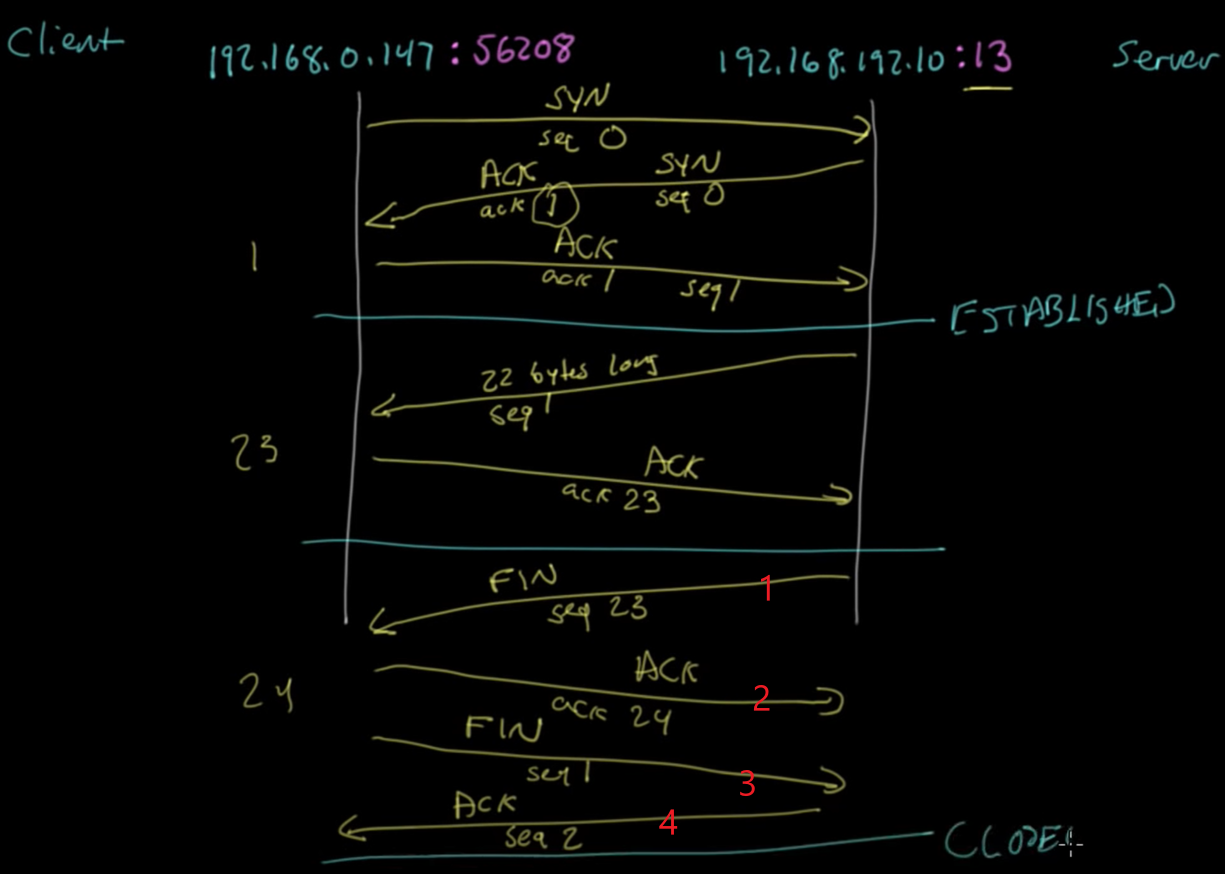 Client 192.168.0.147:56208 192.168.192.10:13 Server
SYN
seq 0
ACK SYN
ack 1 seq 0
1
ACK
ack 1 seq 1
ESTABLISHED
22 bytes long
seq 1
23
ACK
ack 23
FIN 1
seq 23
24
ACK
ack 24 2
FIN
seq 1 3
ACK 4
seq 2